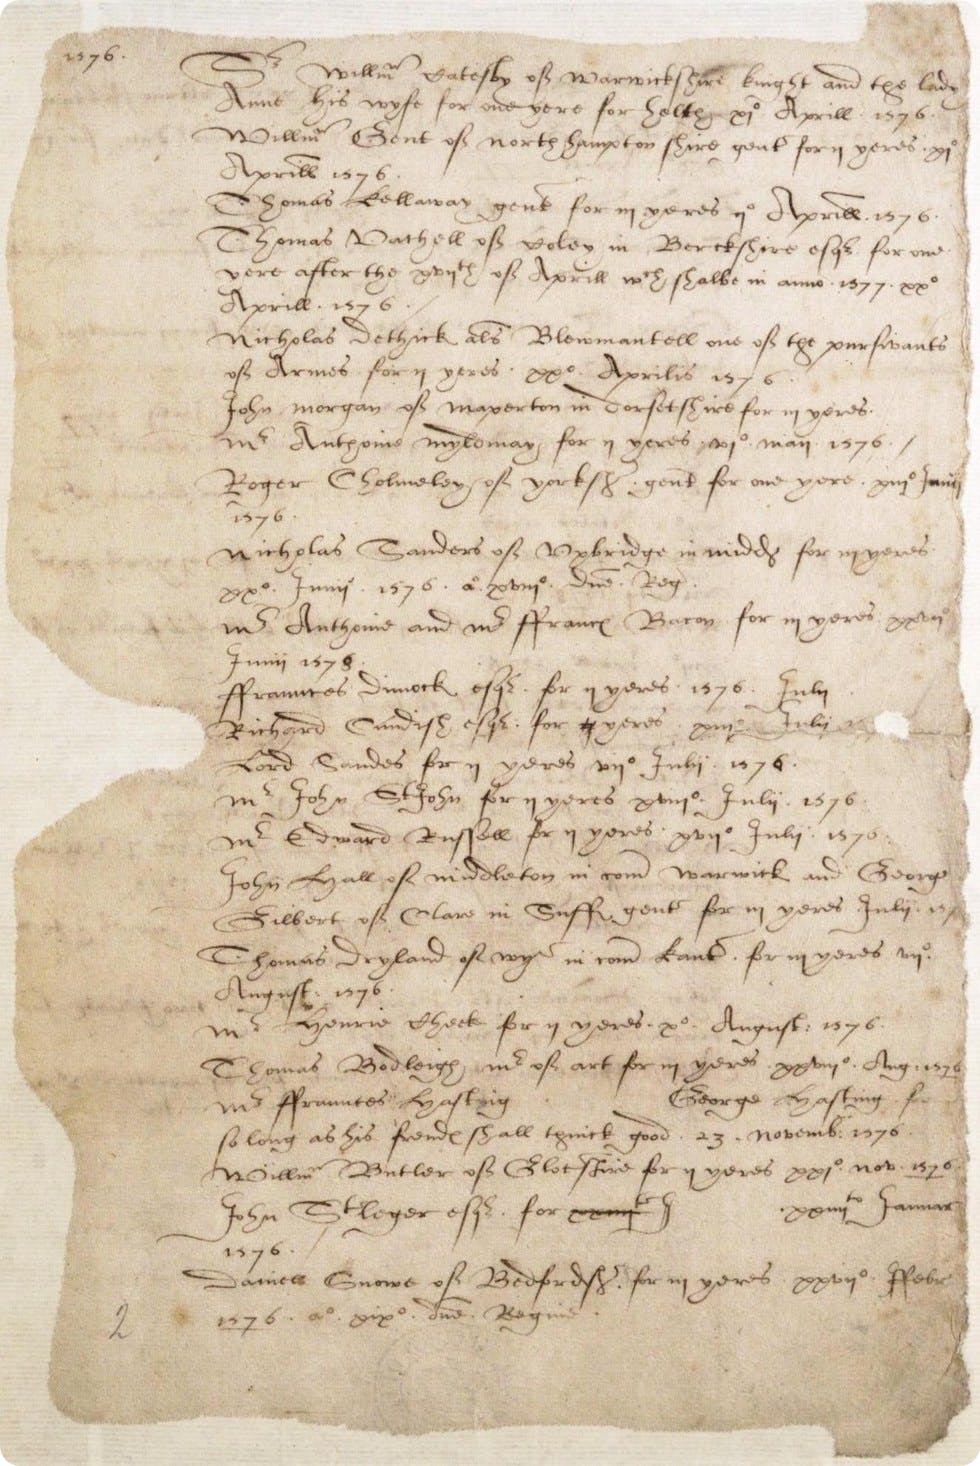 1576.
Sr Willm Catesby off Warwickshire knight and the lady
Anne his wyfe for one yere for helth xio Aprill . 1576.
Willm Gent off northhampton shire gent for ij yeres . xio
Aprill 1576 .
Thomas Kellaway gent for iij yeres ijo Aprill . 1576 .
Thomas Vachell off Coley in Berckshire esqr for one
yere after the xviith off Aprill wch shalbe in anno . 1577 . xxo
Aprill . 1576 . /
Nicholas Dethick als Blewmantell one off the pursivants
off Armes for ij yeres . xxo . Aprilis 1576 .
John morgan off maperton in Dorsetshire for iij yeres .
mr Anthoine myldmay for ij yeres . vio . maij . 1576 . /
Roger Cholmeley off yorksh . gent for one yere . xiijo Junij
1576 .
Nicholas Sanders off Vxbridge in midds for iij yeres
xxo . Junij . 1576 . ao . xviijo . Dne . Reg .
mr Anthoine and mr ffrancs Bacon for iij yeres . xxviijo
Junij 1576 .
ffraunces Dimock esqr . for ij yeres . 1576 . Julij
Richard Candish esqr . for yeres . Julij
Lord Sandes for ij yeres viio Julij . 1576 .
mr John St John for ij yeres xviijo . Julij . 1576 .
mr Edward Russell for ij yeres . xviio Julij . 1576 .
John Hall off middleton in com Warwick and George
Gilbert off Clare in Suff gent for iij yeres Julij .
Thomas Dryland off wye in com Kant . for iij yeres viio .
August . 1576 .
mr Henrie Cheek for ij yeres . xo . August : 1576 .
Thomas Bodleigh mr off art for iij yeres . xxviijo . Aug . 1576
mr ffraunces Hasting George Hasting for
so long as his frends shall thinck good . 23 . Novemb : 1576 .
Willm Butler off Glocshire for ij yeres xxio . nov . 1576 .
John St leger esqr . for . xxiiijto Januar
1576 .
Daniell Snowe off Bedfordsh . for iij yeres . xxviio . ffebr
1576 . ao . xixo . Dne . Regine .
2